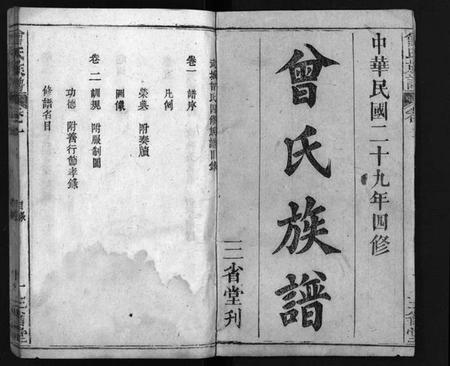 中華民國二十九年四修
曾氏族譜
三省堂刊
曾氏四修族譜目錄
卷一 譜序
凡例
榮典 附奏牘
圖像
卷二 訓規 附服制圖
功德 附舊行節孝錄
修譜名目
曾氏族譜
三省堂